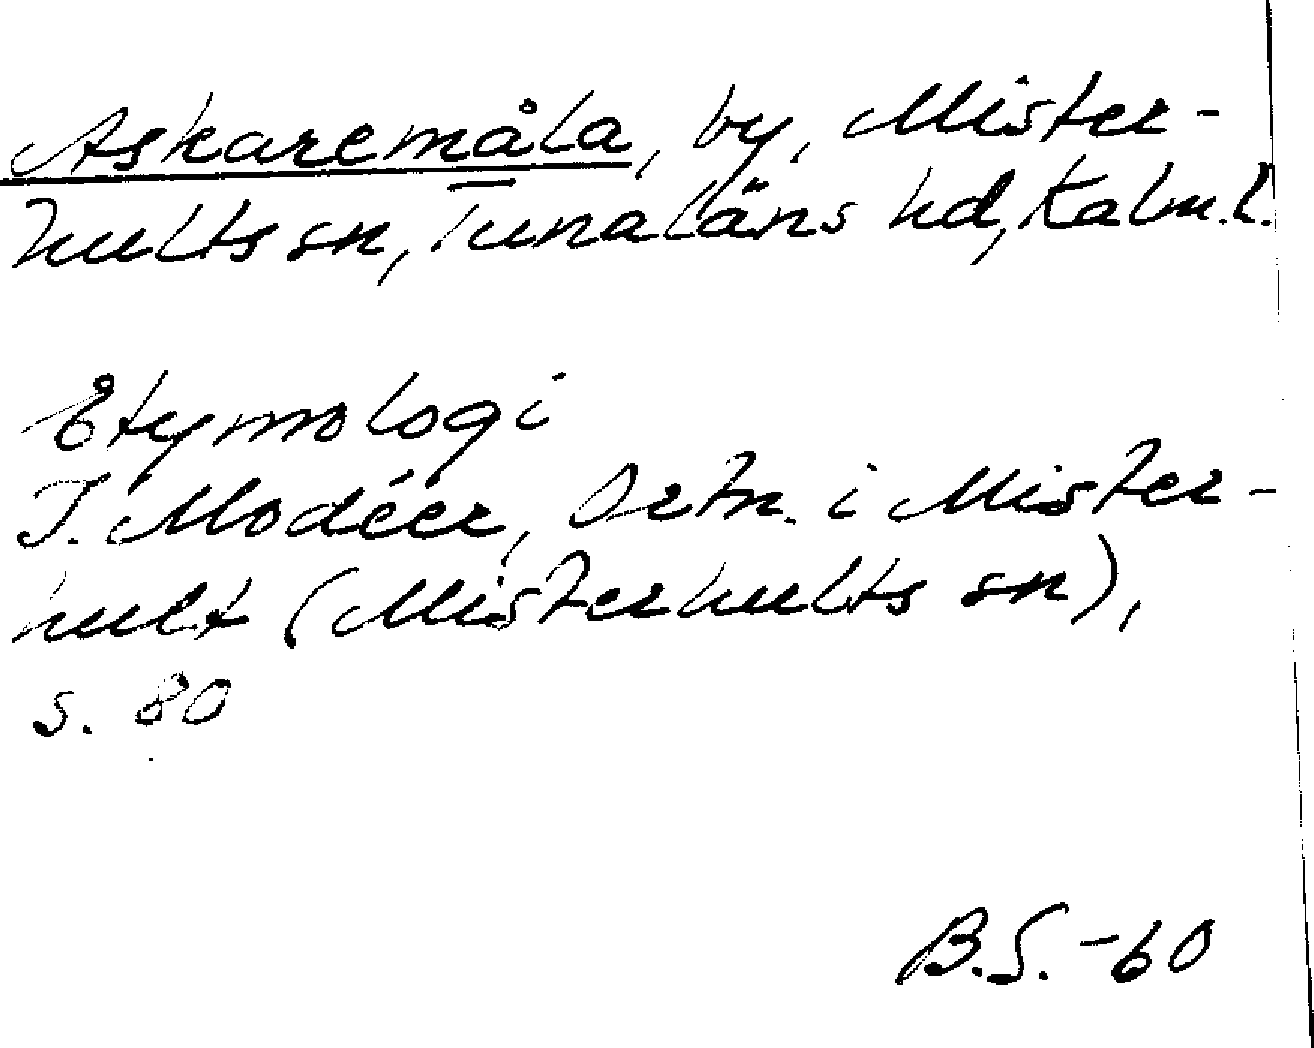 Askaremåla, by, Mister-
hults sn, Tunaläns hd, Kalm.l.
Etymologi
I. Modéer, Ortn. i Mister-
hult (Misterhults sn),
s. 80
B.S. -60